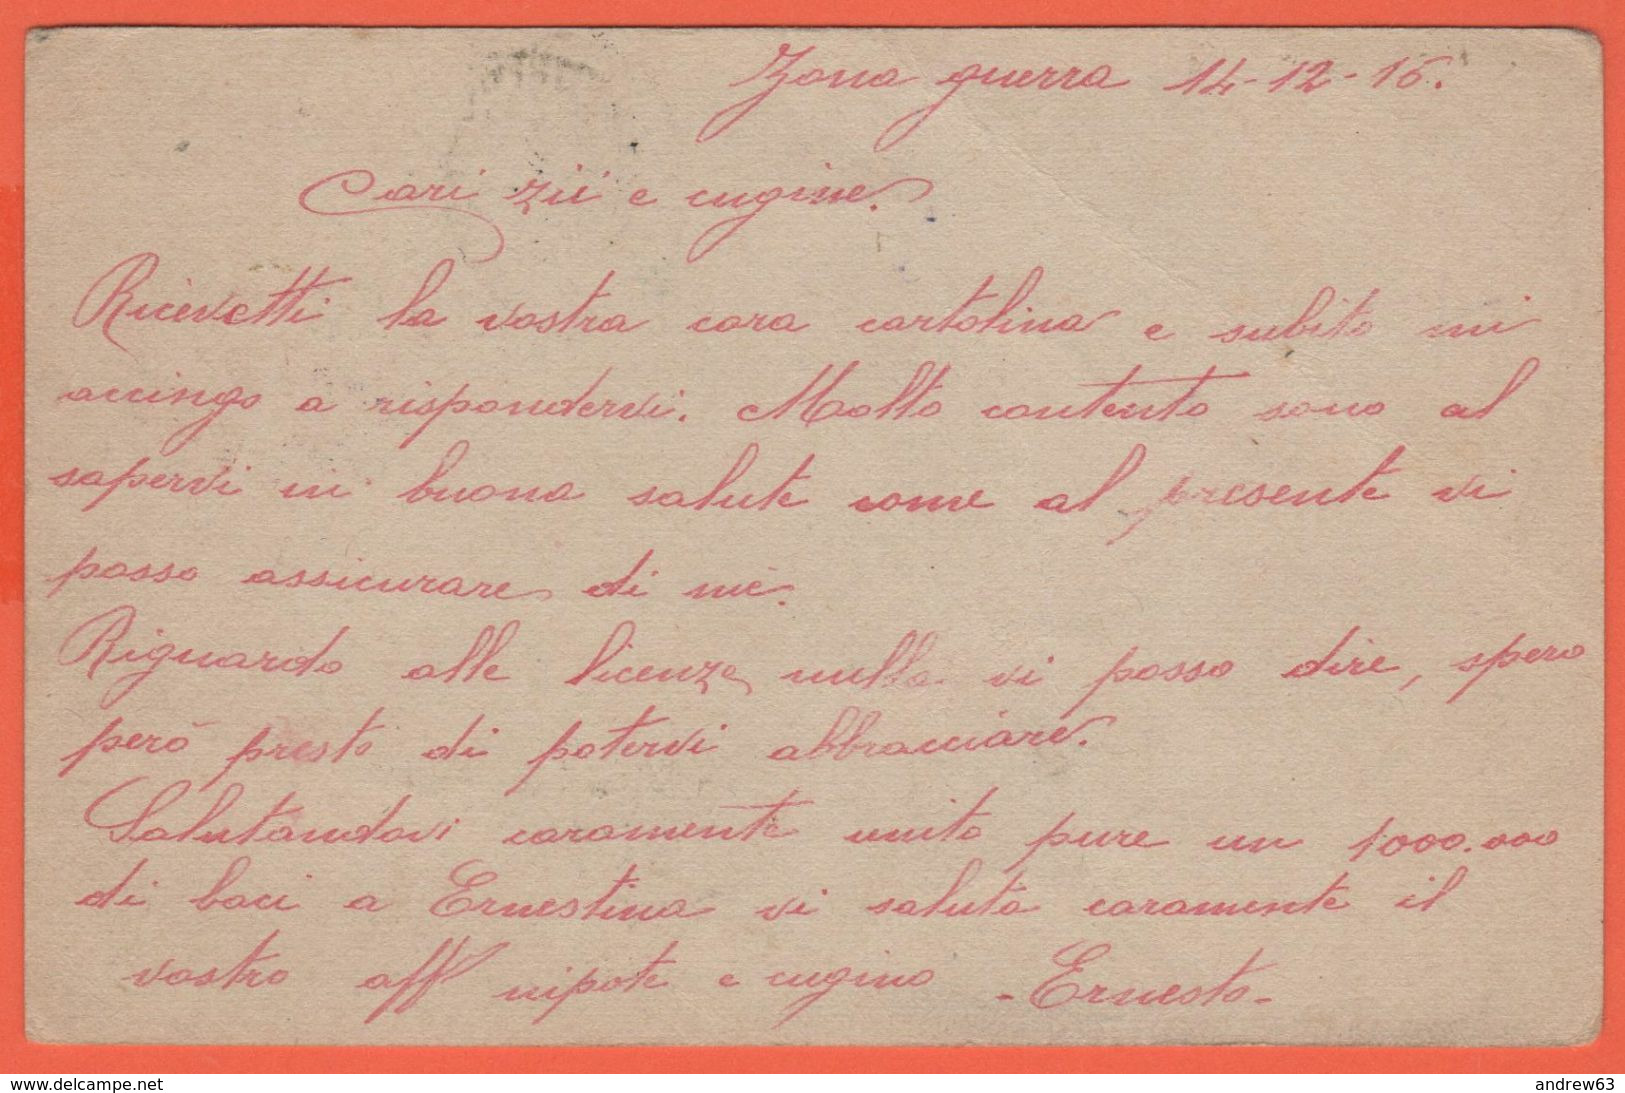 Zona guerra 14-12-16.
Cari zii e cugine.
Ricevetti la vostra cara cartolina e subito mi
accingo a rispondervi. Molto contento sono al
sapervi in buona salute come al presente vi
posso assicurare di mè.
Riguardo alle licenze nulla vi posso dire, spero
però presto di potervi abbracciare.
Salutandovi caramente unito pure un 1000.000
di baci a Ernestina vi saluta caramente il
vostro aff nipote e cugino
-Ernesto-
www.delcampe.net
andrew63